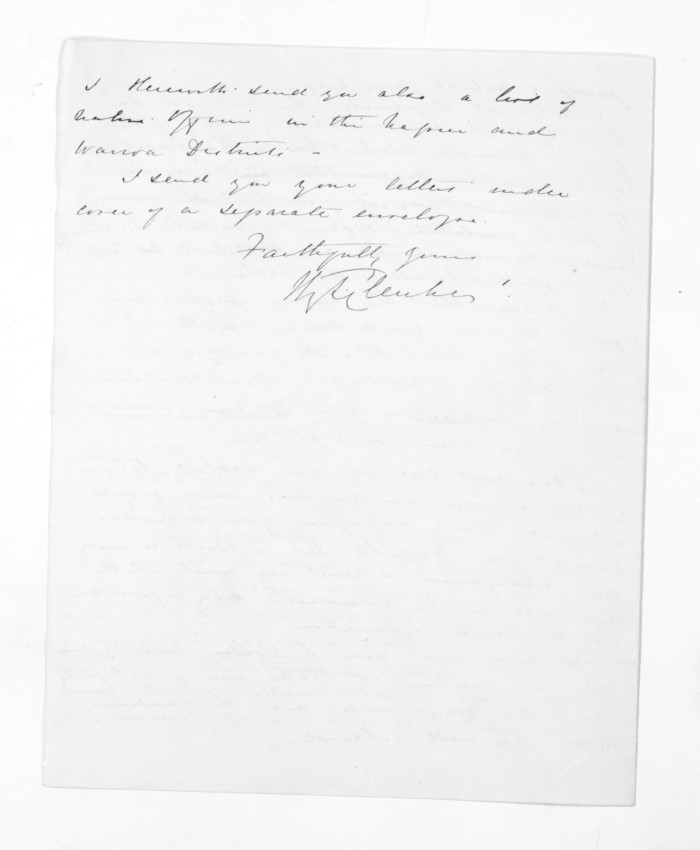 I Herewith send you also a list of
native Officers in the Napier and
Wairoa Districts -
I send you your letters under
cover of a separate envelope.
Faithfully yours